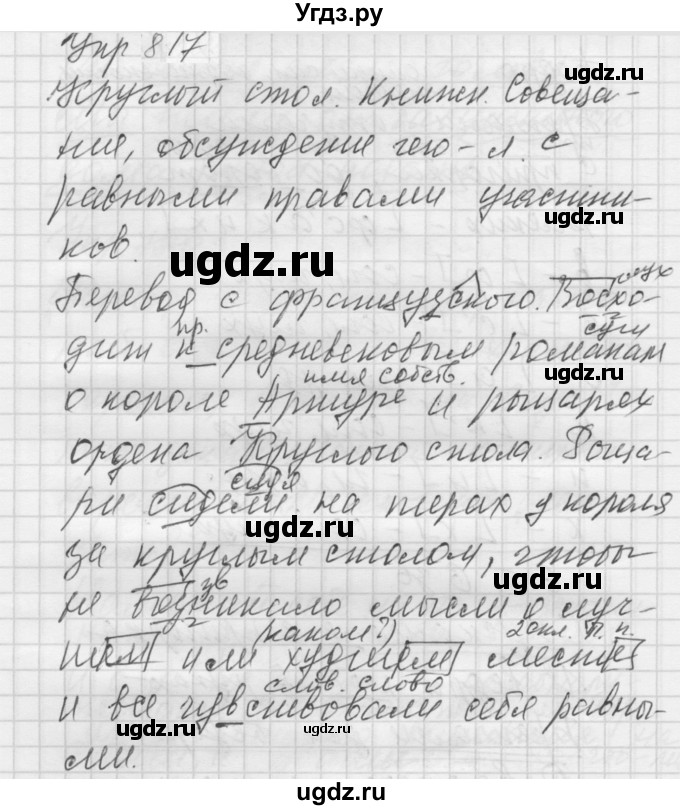 Угдз.ру
Упр 817
Круглый стол. Книжн. Совеща-
ния, обсуждение чего-л. с
равными правами участни-
ков.
Перевод с французского. Восхо-
дит к средневековым романам
о короле Артуре и рыцарях
ордена Круглого стола. Рыца-
ри сидели на пирах у короля
за круглым столом, чтобы
не возникало мысли о луч-
шем или худшем месте
и все чувствовали себя равны-
ми.
глух
пр.
имя собств.
сидя
зв
(каком?)
2 скл. П. п.
слов. слово
ugdz.ru
ugdz.ru
ugdz.ru
ugdz.ru
ugdz.ru
ugdz.ru
ugdz.ru
ugdz.ru
ugdz.ru
ugdz.ru
ugdz.ru
ugdz.ru
ugdz.ru